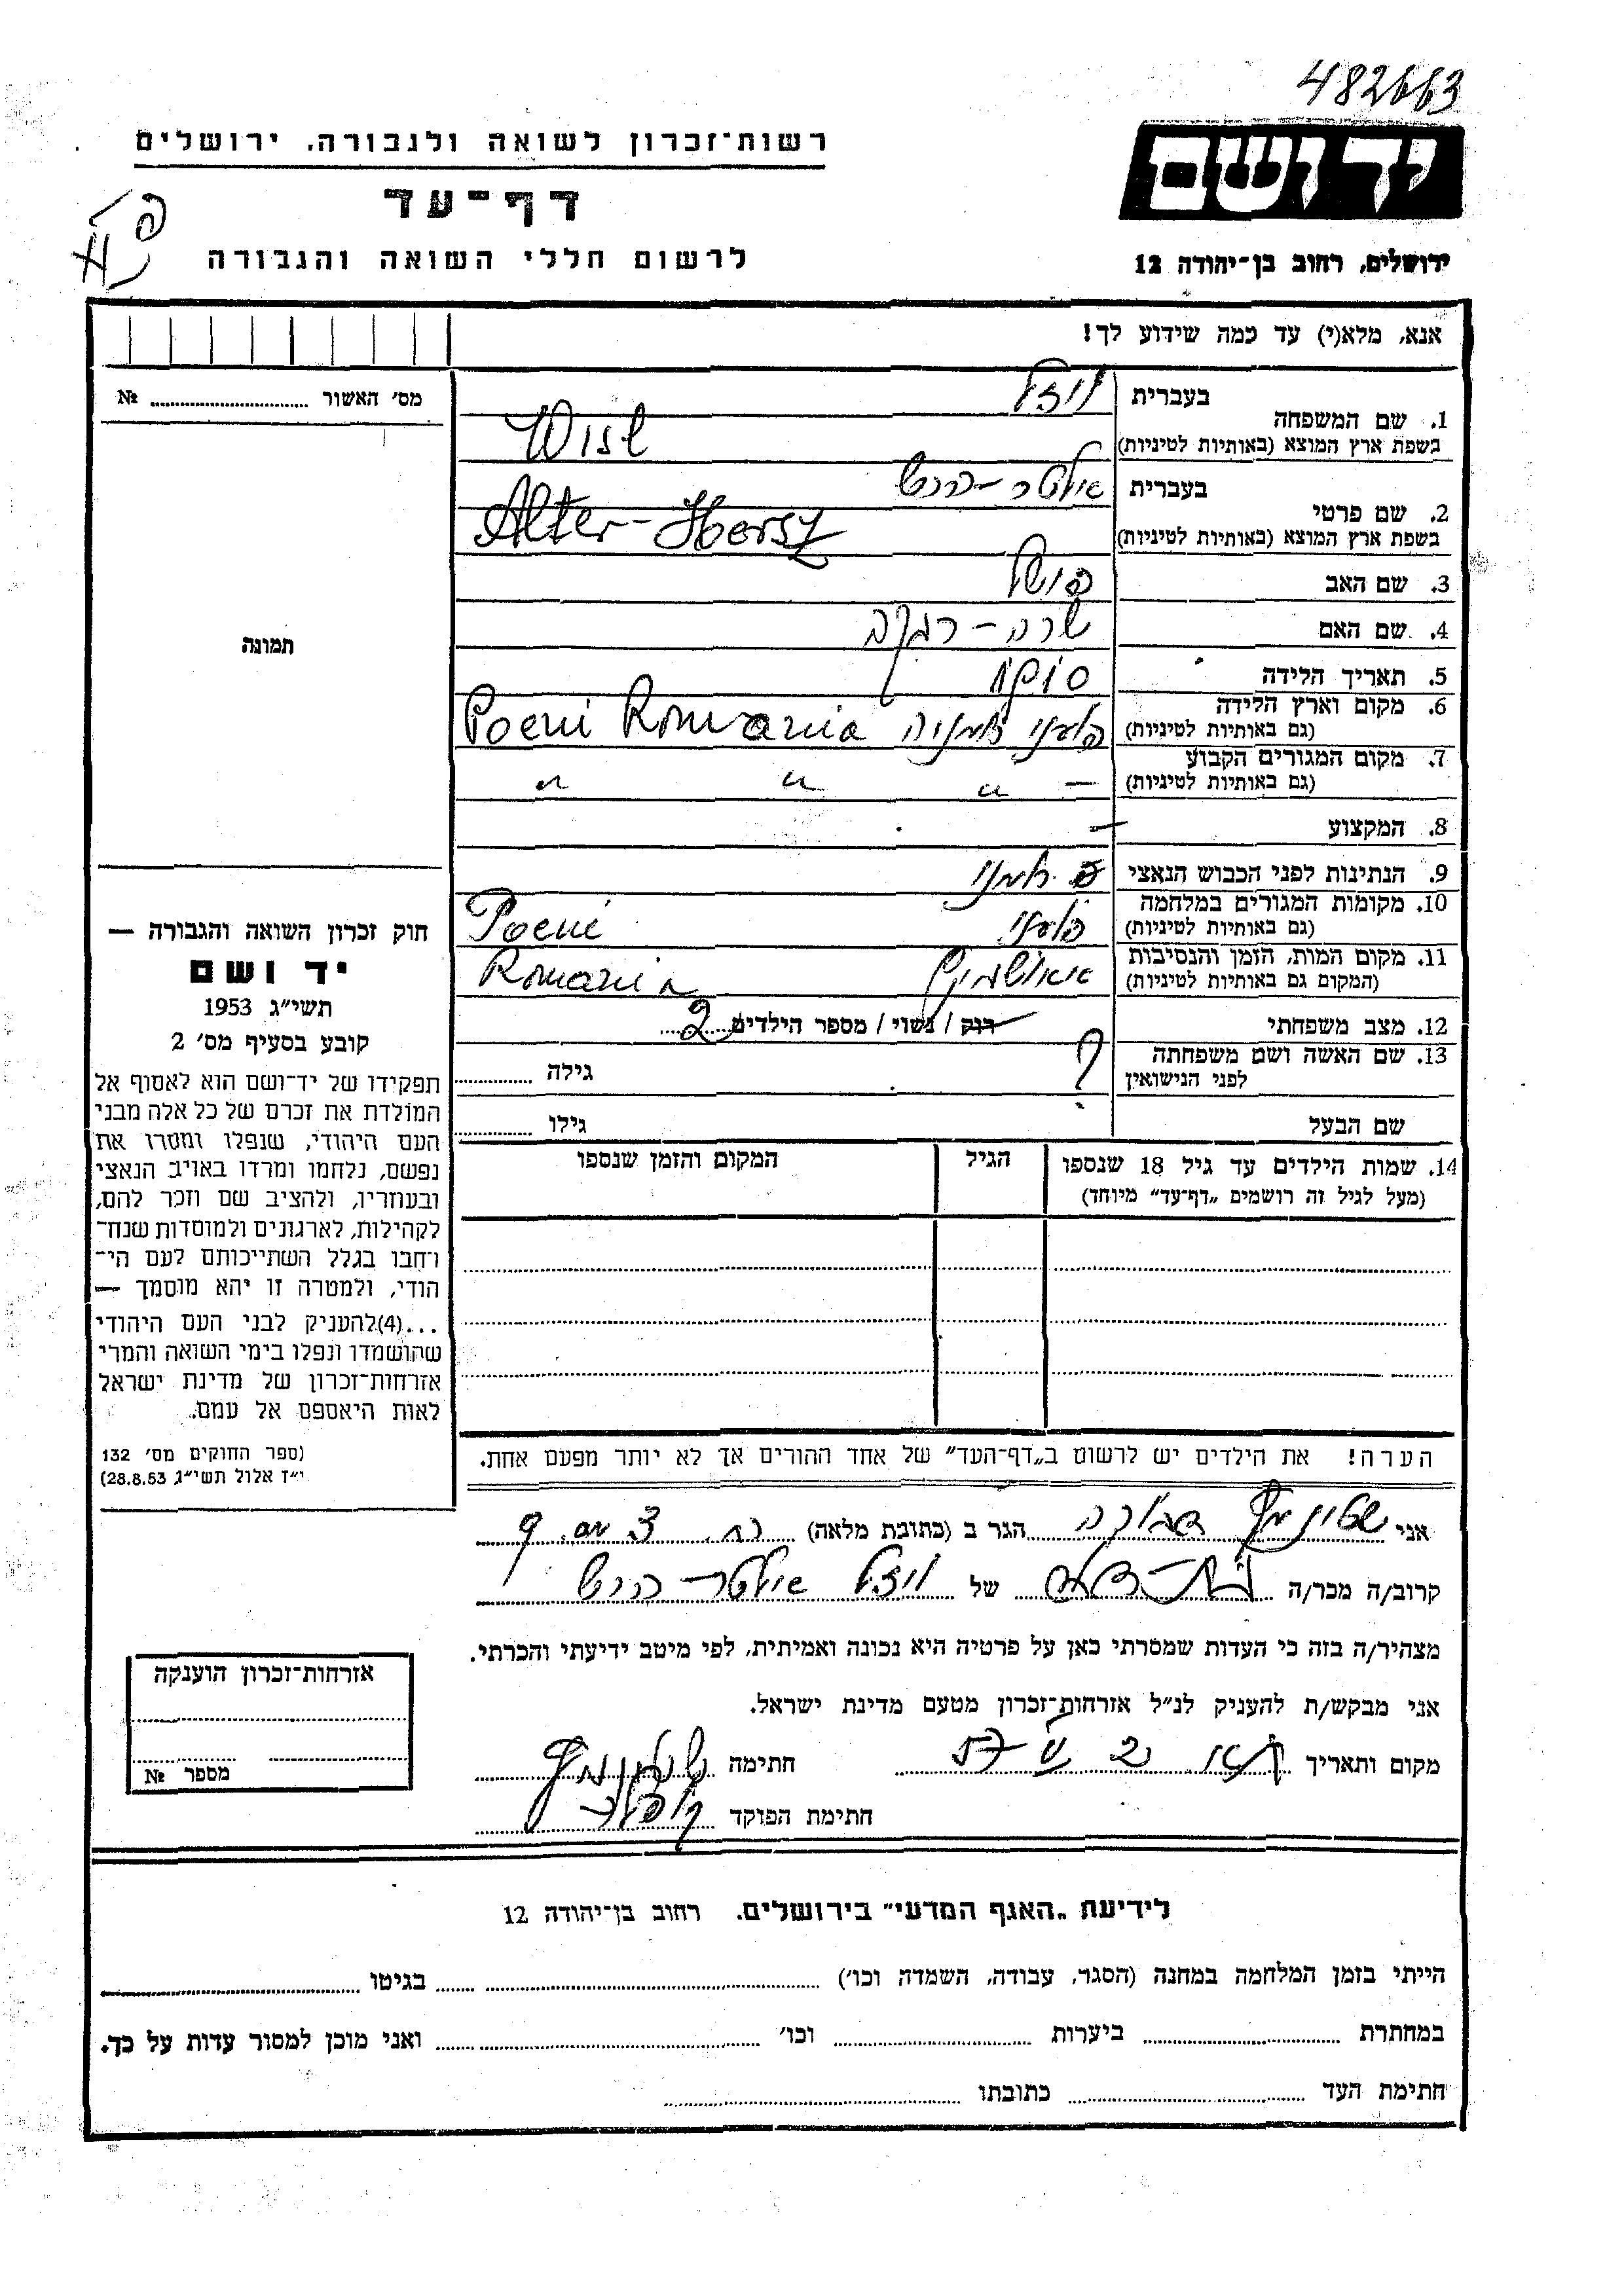 482663
רשות־זכרון לשואה ולגבורה, ירושלים
ידושם
דף־עד
לרשום חללי השואה והגבורה
ירושלים, רחוב בן־יהודה 12
אנא, מלא(י) עד כמה שידוע לך!
מס׳ האשור № 
1. שם המשפחה
בעברית
בשפת ארץ המוצא (באותיות לטיניות)
2. שם פרטי
בעברית אלטר-הרש
בשפת ארץ המוצא (באותיות לטיניות) Alter-Hersz
3. שם האב
4. שם האם שרה-רבקה
5. תאריך הלידה
6. מקום וארץ הלידה
(גם באותיות לטיניות) Poeni Romania
7. מקום המגורים הקבוע
(גם באותיות לטיניות) — " " "
8. המקצוע —
9. הנתינות לפני הכבוש הנאצי
10. מקומות המגורים במלחמה
(גם באותיות לטיניות) Poeni
11. מקום המות, הזמן והנסיבות
(המקום גם באותיות לטיניות) Romania
12. מצב משפחתי רווק / נשוי / מספר הילדים 2
13. שם האשה ושם משפחתה
לפני הנישואין ? גילה
שם הבעל גילו
14. שמות הילדים עד גיל 18 שנספו
(מעל לגיל זה רושמים „דף־עד” מיוחד)
הגיל
המקום והזמן שנספו
תמונה
חוק זכרון השואה והגבורה —
יד ושם
תשי״ג 1953
קובע בסעיף מס׳ 2
תפקידו של יד־ושם הוא לאסוף אל
המולדת את זכרם של כל אלה מבני
העם היהודי, שנפלו ומסרו את
נפשם, נלחמו ומרדו באויב הנאצי
ובעוזריו, ולהציב שם וזכר להם,
לקהילות, לארגונים ולמוסדות שנח־
רחבו בגלל השתייכותם לעם הי־
הודי, ולמטרה זו יהא מוסמך —
...(4)להעניק לבני העם היהודי
שהושמדו ונפלו בימי השואה והמרי
אזרחות־זכרון של מדינת ישראל
לאות היאספם אל עמם.
(ספר החוקים מס׳ 132
י״ז אלול תשי״ג 28.8.53)
הערה! את הילדים יש לרשום ב„דף־העד” של אחד ההורים אך לא יותר מפעם אחת.
אני הגר ב (כתובת מלאה)
קרוב/ה מכר/ה של אלטר-הרש
מצהיר/ה בזה כי העדות שמסרתי כאן על פרטיה היא נכונה ואמיתית, לפי מיטב ידיעתי והכרתי.
אני מבקש/ת להעניק לנ״ל אזרחות־זכרון מטעם מדינת ישראל.
מקום ותאריך חתימה
חתימת הפוקד
אזרחות־זכרון הוענקה
מספר №
לידיעת „האגף המדעי” בירושלים. רחוב בן־יהודה 12
הייתי בזמן המלחמה במחנה (הסגר, עבודה, השמדה וכו׳) בגיטו
במחתרת ביערות וכו׳ ואני מוכן למסור עדות על כך.
חתימת העד כתובתו